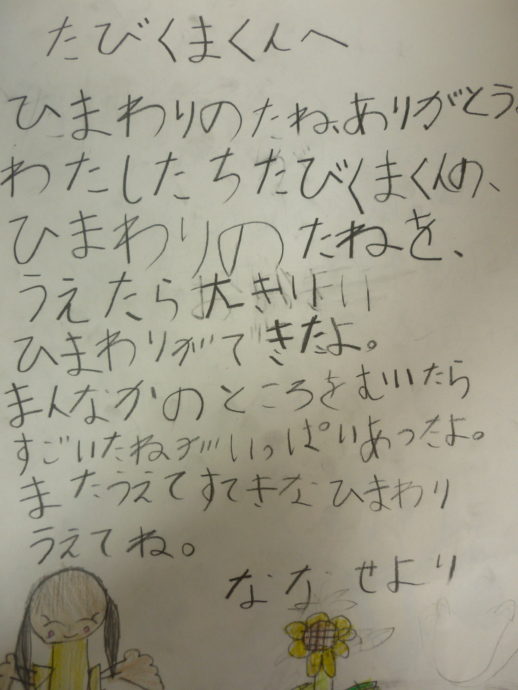 たびくまくんへ
ひまわりのたね、ありがとう。
わたしたちたびくまくんの、
ひまわりのたねを、
うえたら大きい
ひまわりができたよ。
まんなかのところをむいたら
すごいたねがいっぱいあったよ。
またうえてすてきなひまわり
うえてね。
ななせより